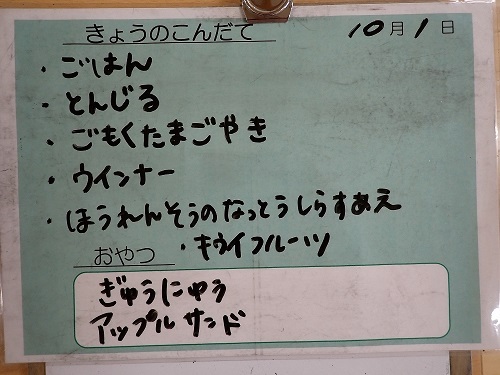 きょうのこんだて 10月1日
・ごはん
・とんじる
・ごもくたまごやき
・ウインナー
・ほうれんそうのなっとうしらすあえ
・キウイフルーツ
おやつ
ぎゅうにゅう
アップルサンド